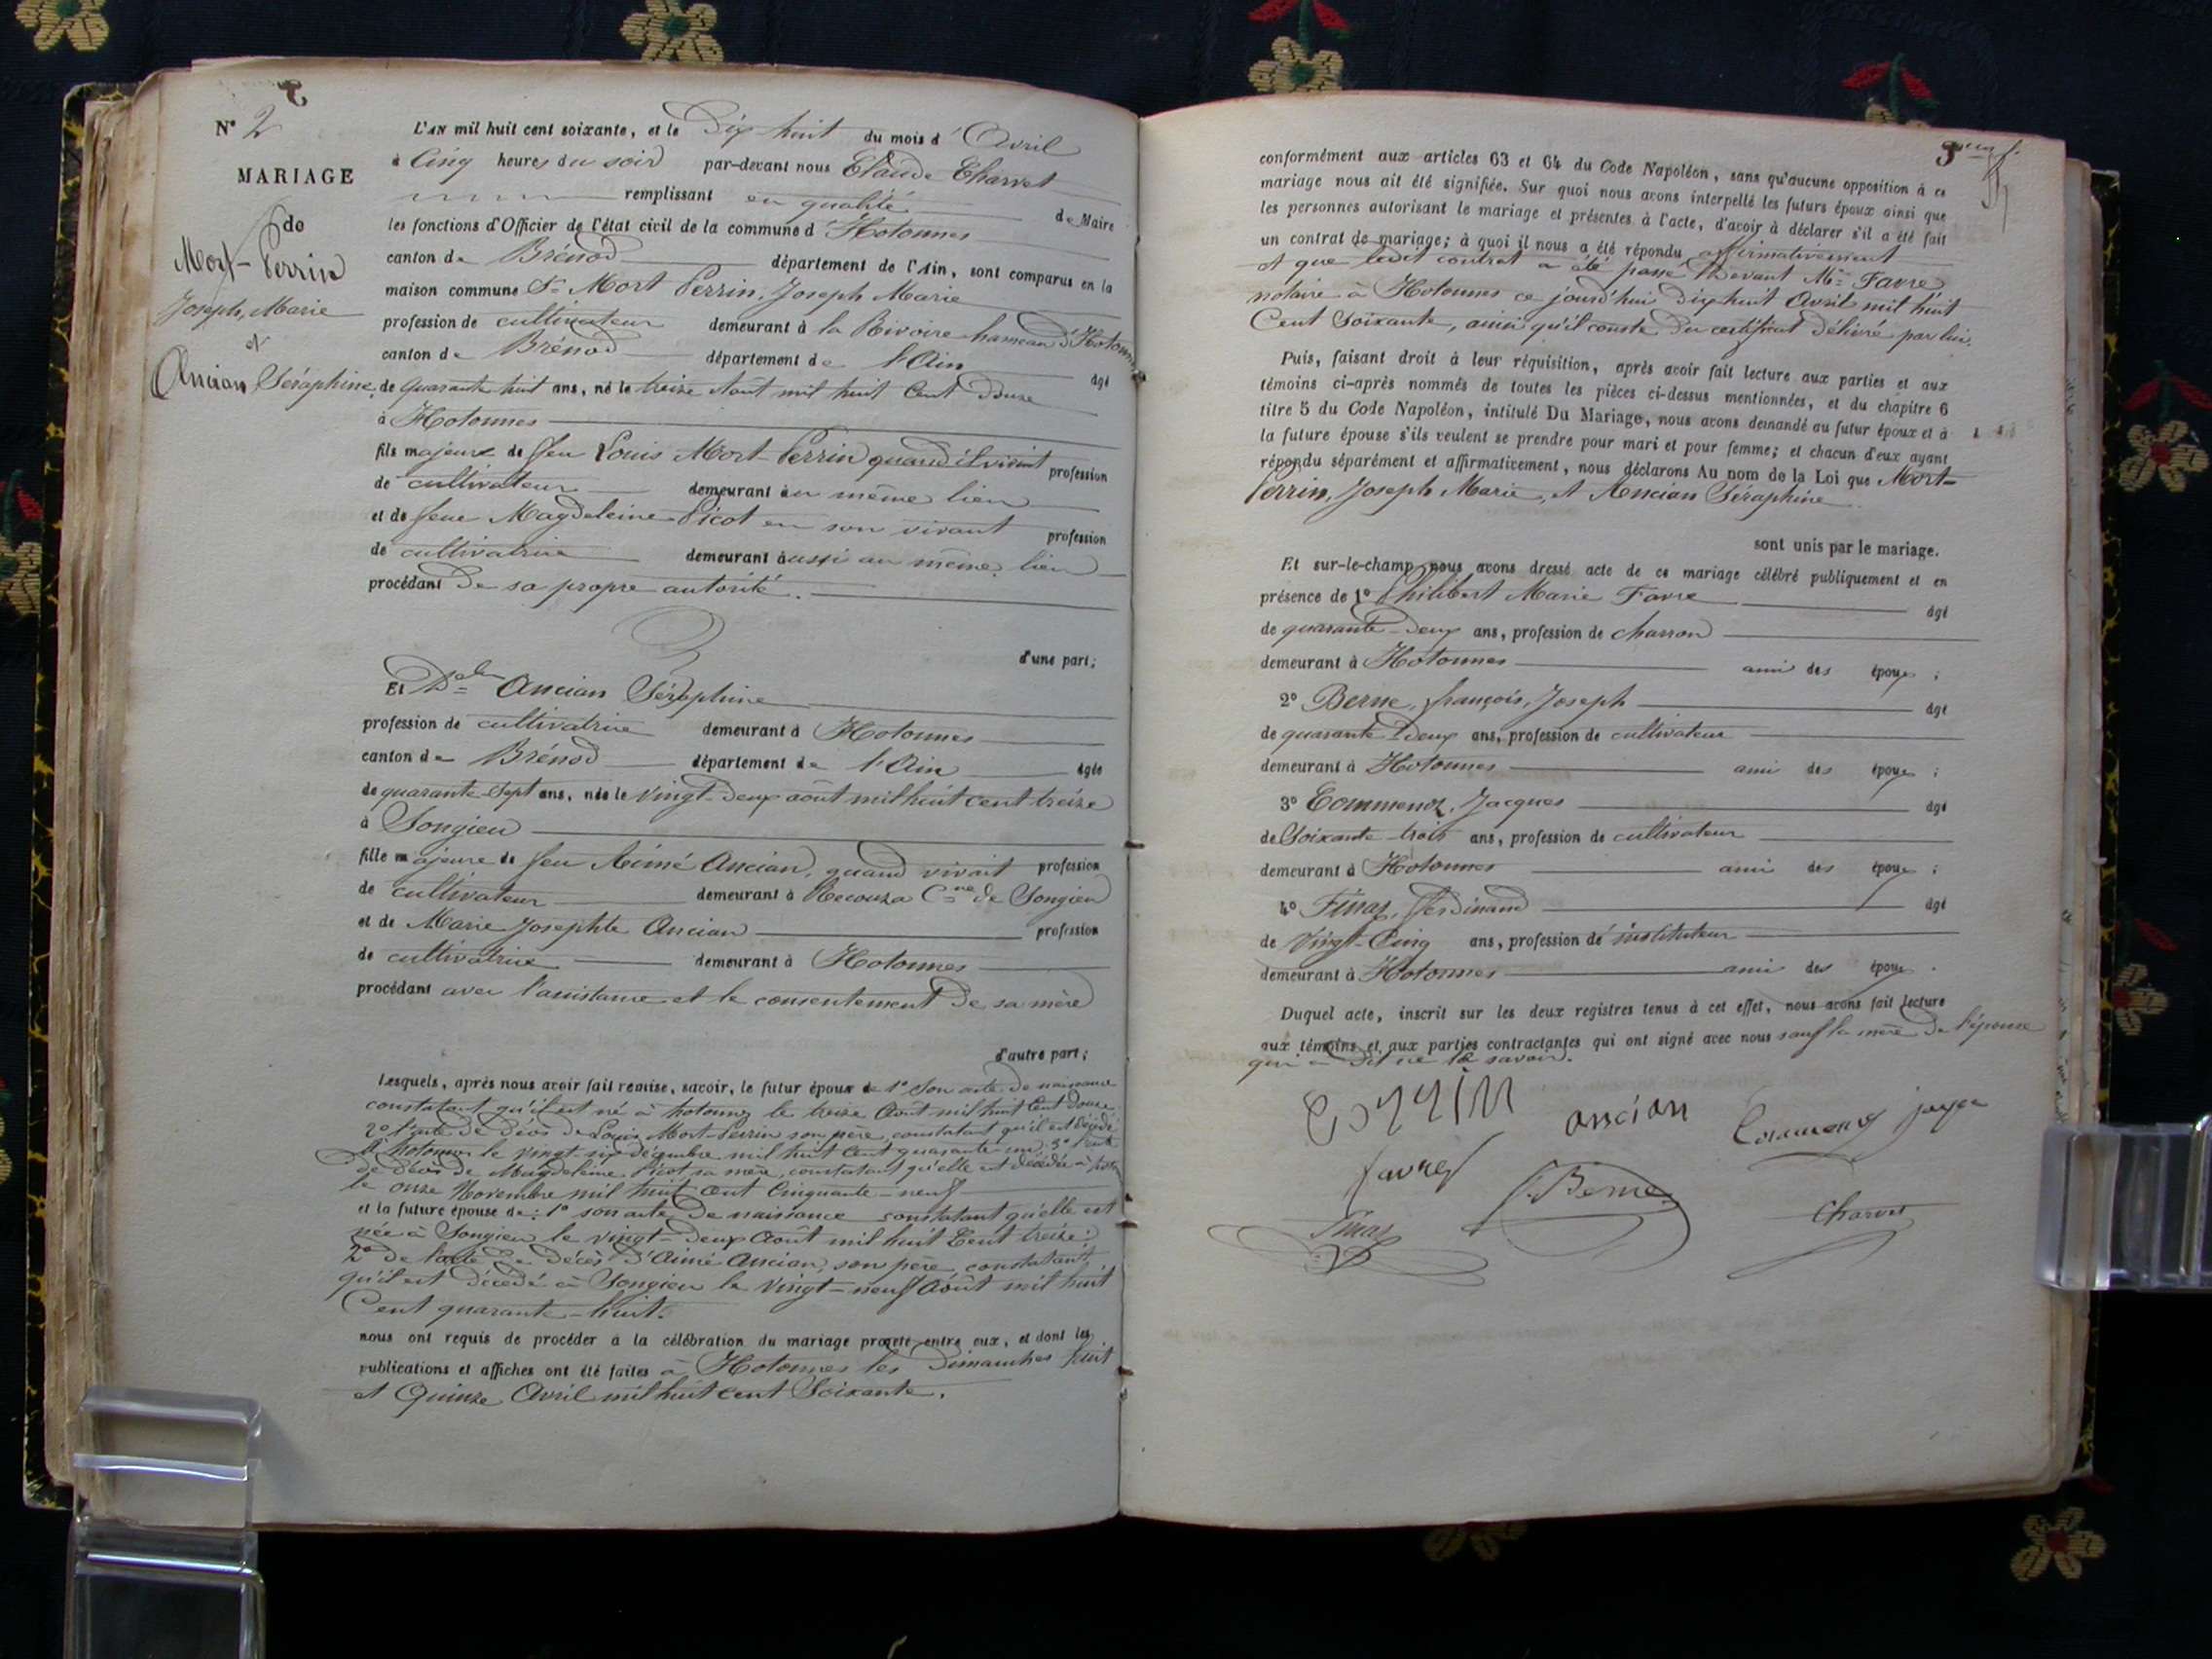 2
N° 2
MARIAGE
de
Mort-Perrin
Joseph, Marie
et
Ancian Séraphine.
L'AN mil huit cent soixante, et le Dix huit du mois d' Avril
à Cinq heures du soir par-devant nous Claude Charvet
remplissant en qualité de Maire
les fonctions d'Officier de l'état civil de la commune d' Hotonnes
canton de Brénod département de l'Ain, sont comparus en la
maison commune Sr Mort Perrin, Joseph Marie
profession de cultivateur demeurant à la Rivoire hameau d'Hotonnes
canton de Brénod département de l'Ain âgé
de quarante huit ans, né le treize Aout mil huit Cent Douze
à Hotonnes
fils majeur de feu Louis Mort-Perrin quand il vivait profession
de cultivateur demeurant au même lieu
et de feue Magdeleine Picot en son vivant profession
de cultivatrice demeurant aussi au même lieu
procédant de sa propre autorité.
d'une part;
Et Delle Ancian Séraphine
profession de cultivatrice demeurant à Hotonnes
canton de Brénod département de l'Ain âgée
de quarante-sept ans, née le vingt-deux août mil huit cent treize
à Songieu
fille majeure de feu Aimé Ancian, quand vivait profession
de cultivateur demeurant à Recouza Cne de Songieu
et de Marie Josephte Ancian profession
de cultivatrice demeurant à Hotonnes
procédant avec l'assistance et le consentement de sa mère
d'autre part;
Lesquels, après nous avoir fait remise, savoir, le futur époux de 1° Son acte de naissance
constatant qu'il est né à hotonnes le treize Août mil huit Cent Douze
2° l'acte de décès de Louis Mort-Perrin son père, constatant qu'il est décédé
à Hotonnes le vingt-six décembre mil huit Cent quarante un; 3° l'acte
de décès de Magdeleine Picot sa mère, constatant qu'elle est décédée à
le onze Novembre mil huit cent Cinquante-neuf
et la future épouse de: 1° son acte de naissance constatant qu'elle est
née à Songieu le vingt-deux Août mil huit Cent treize;
2° de l'acte de décès d'Aimé Ancian, son père, constatant
qu'il est décédé à Songieu le Vingt-neuf Août mil huit
Cent quarante-huit.
nous ont requis de procéder à la célébration du mariage projeté entre eux, et dont les
publications et affiches ont été faites à Hotonnes les Dimanches huit
et Quinze Avril mil huit cent Soixante.
3
conformément aux articles 63 et 64 du Code Napoléon, sans qu'aucune opposition à ce
mariage nous ait été signifiée. Sur quoi nous avons interpellé les futurs époux ainsi que
les personnes autorisant le mariage et présentes à l'acte, d'avoir à déclarer s'il a été fait
un contrat de mariage; à quoi il nous a été répondu affirmativement
et que ledit contrat a été passé Devant Me Favre
notaire à Hotonnes ce jourd'hui Dix huit Avril mil huit
Cent Soixante, ainsi qu'il conste du certificat délivré par lui.
Puis, faisant droit à leur réquisition, après avoir fait lecture aux parties et aux
témoins ci-après nommés de toutes les pièces ci-dessus mentionnées, et du chapitre 6
titre 5 du Code Napoléon, intitulé Du Mariage, nous avons demandé au futur époux et à
la future épouse s'ils veulent se prendre pour mari et pour femme; et chacun d'eux ayant
répondu séparément et affirmativement, nous déclarons Au nom de la Loi que Mort-
Perrin, Joseph Marie, et Ancian Séraphine
sont unis par le mariage.
Et sur-le-champ nous avons dressé acte de ce mariage célébré publiquement et en
présence de 1° Philibert Marie Favre âgé
de quarante-deux ans, profession de charron
demeurant à Hotonnes ami des époux;
2° Berne, françois, Joseph âgé
de quarante deux ans, profession de cultivateur
demeurant à Hotonnes ami des époux;
3° Commenoz, Jacques âgé
de Soixante-trois ans, profession de cultivateur
demeurant à Hotonnes ami des époux;
4° Finaz, Ferdinand âgé
de Vingt-Cinq ans, profession de instituteur
demeurant à Hotonnes ami des époux.
Duquel acte, inscrit sur les deux registres tenus à cet effet, nous avons fait lecture
aux témoins et aux parties contractantes qui ont signé avec nous sauf la mère de l'épouse
qui a dit ne le savoir.
ancian
favre
Berne
Finaz
Charvet